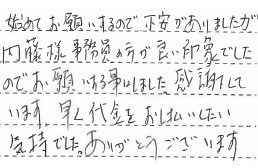 始めてお願いするので不安がありましたが
内藤様事務員の方が良い印象でした
のでお願いする事にしました。感謝して
います。早く代金をお払いしたい
気持でした。ありがとうございます